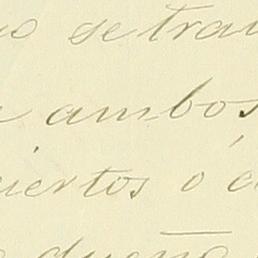 se tra
ambos
ciertos ó
dueño